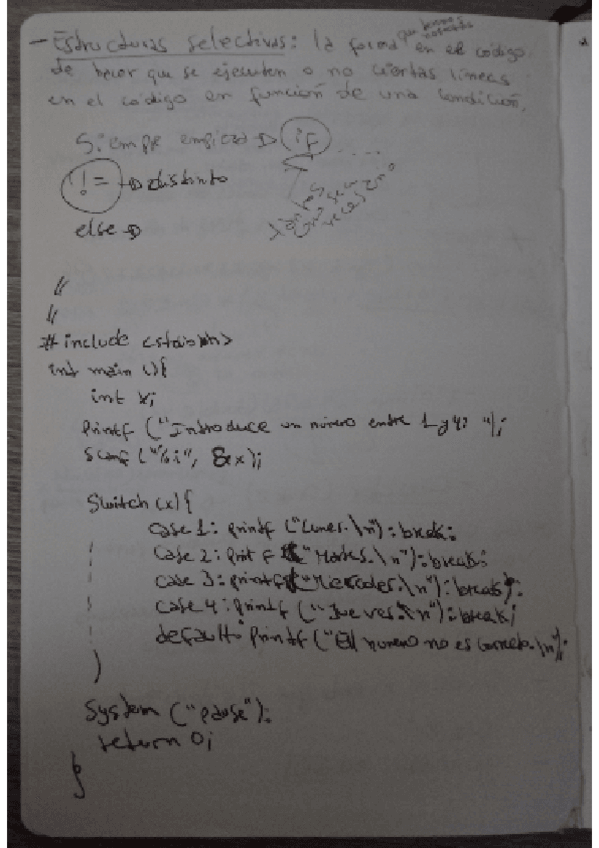 - Estructuras selectivas: la forma que hemos en el código
de hacer que se ejecuten o no ciertas líneas
en el código en función de una condición.
Siempre empieza → if ....
!= → distinto
else →
tantas
como sea
necesario
//
//
#include <stdio.h>
int main (){
int x;
printf ("Introduce un número entre 1 y 4: ");
scanf ("%i", &x);
Switch (x){
case 1: printf ("Lunes.\n"); break;
case 2: printf ("Martes.\n"); break;
case 3: printf ("Miercoles.\n"); break;
case 4: printf ("Jueves.\n"); break;
default: printf ("El numero no es correcto.\n");
}
System ("pause");
return 0;
}